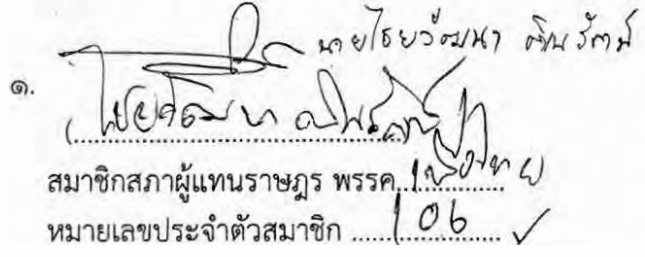 นายไชยวัฒนา ติณรัตน์
๑.
(ไชยวัฒนา ติณรัตน์)
สมาชิกสภาผู้แทนราษฎร พรรค เพื่อไทย
หมายเลขประจำตัวสมาชิก 106 ✓